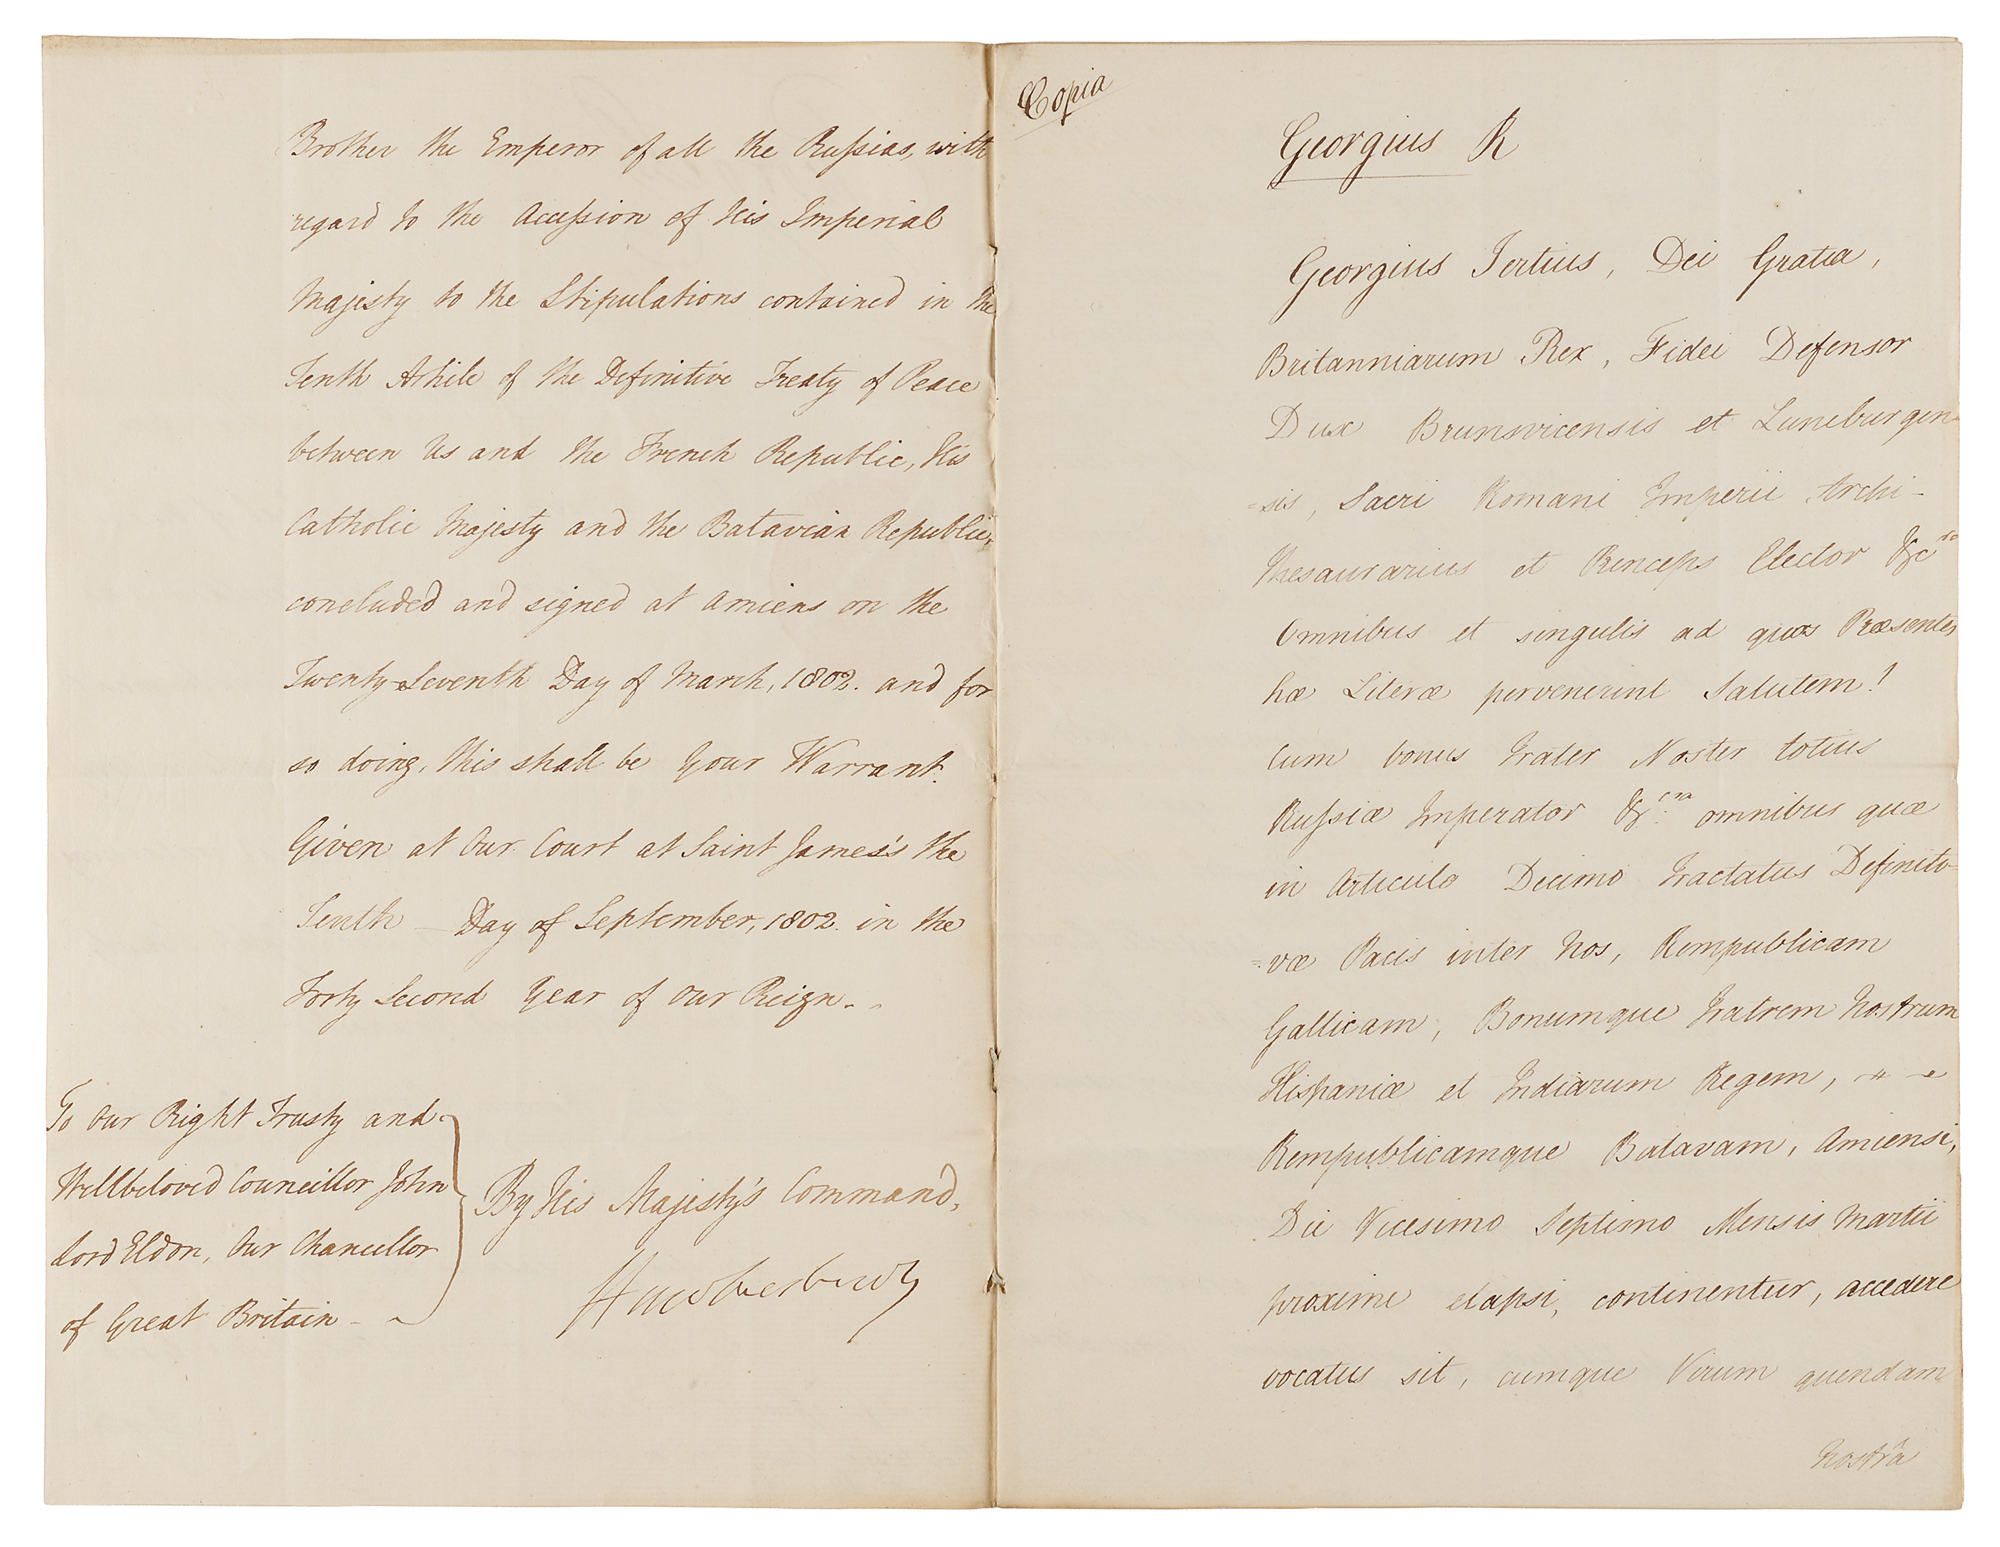 Brother the Emperor of all the Russias, with
regard to the Accession of His Imperial
Majesty to the Stipulations contained in the
Tenth Article of the Definitive Treaty of Peace
between Us and the French Republic, His
Catholic Majesty and the Batavian Republic,
concluded and signed at Amiens on the
Twenty-Seventh Day of March, 1802. and for
so doing, this shall be Your Warrant.
Given at Our Court at Saint James's the
Tenth — Day of September, 1802. in the
Forty Second Year of Our Reign. -
To Our Right Trusty and
Wellbeloved Councillor John
Lord Eldon, Our Chancellor
of Great Britain -
By His Majesty's Command,
Hawkesbury
Copia
Georgius R
Georgius Tertius, Dei Gratia,
Britanniarum Rex, Fidei Defensor
Dux Brunsvicensis et Luneburgen
=sis, Sacri Romani Imperii Archi-
thesaurarius et Princeps Elector &c
Omnibus et singulis ad quos Præsentes
hæ Literæ pervenerint Salutem!
Cum bonus Frater Noster totius
Russiæ Imperator &cra omnibus quæ
in Articulo Decimo Tractatus Definiti-
=væ Pacis inter Nos, Rempublicam
Gallicam, Bonumque Fratrem Nostrum
Hispaniæ et Indiarum Regem,
Rempublicamque Batavam, Amiensi,
Die Vicesimo Septimo Mensis Martii
proxime elapsi, continentur, accedere
vocatus sit, cumque Virum quendam
Nostrâ